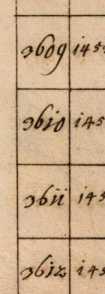 3609 145
3610 145
3611 145
3612 145